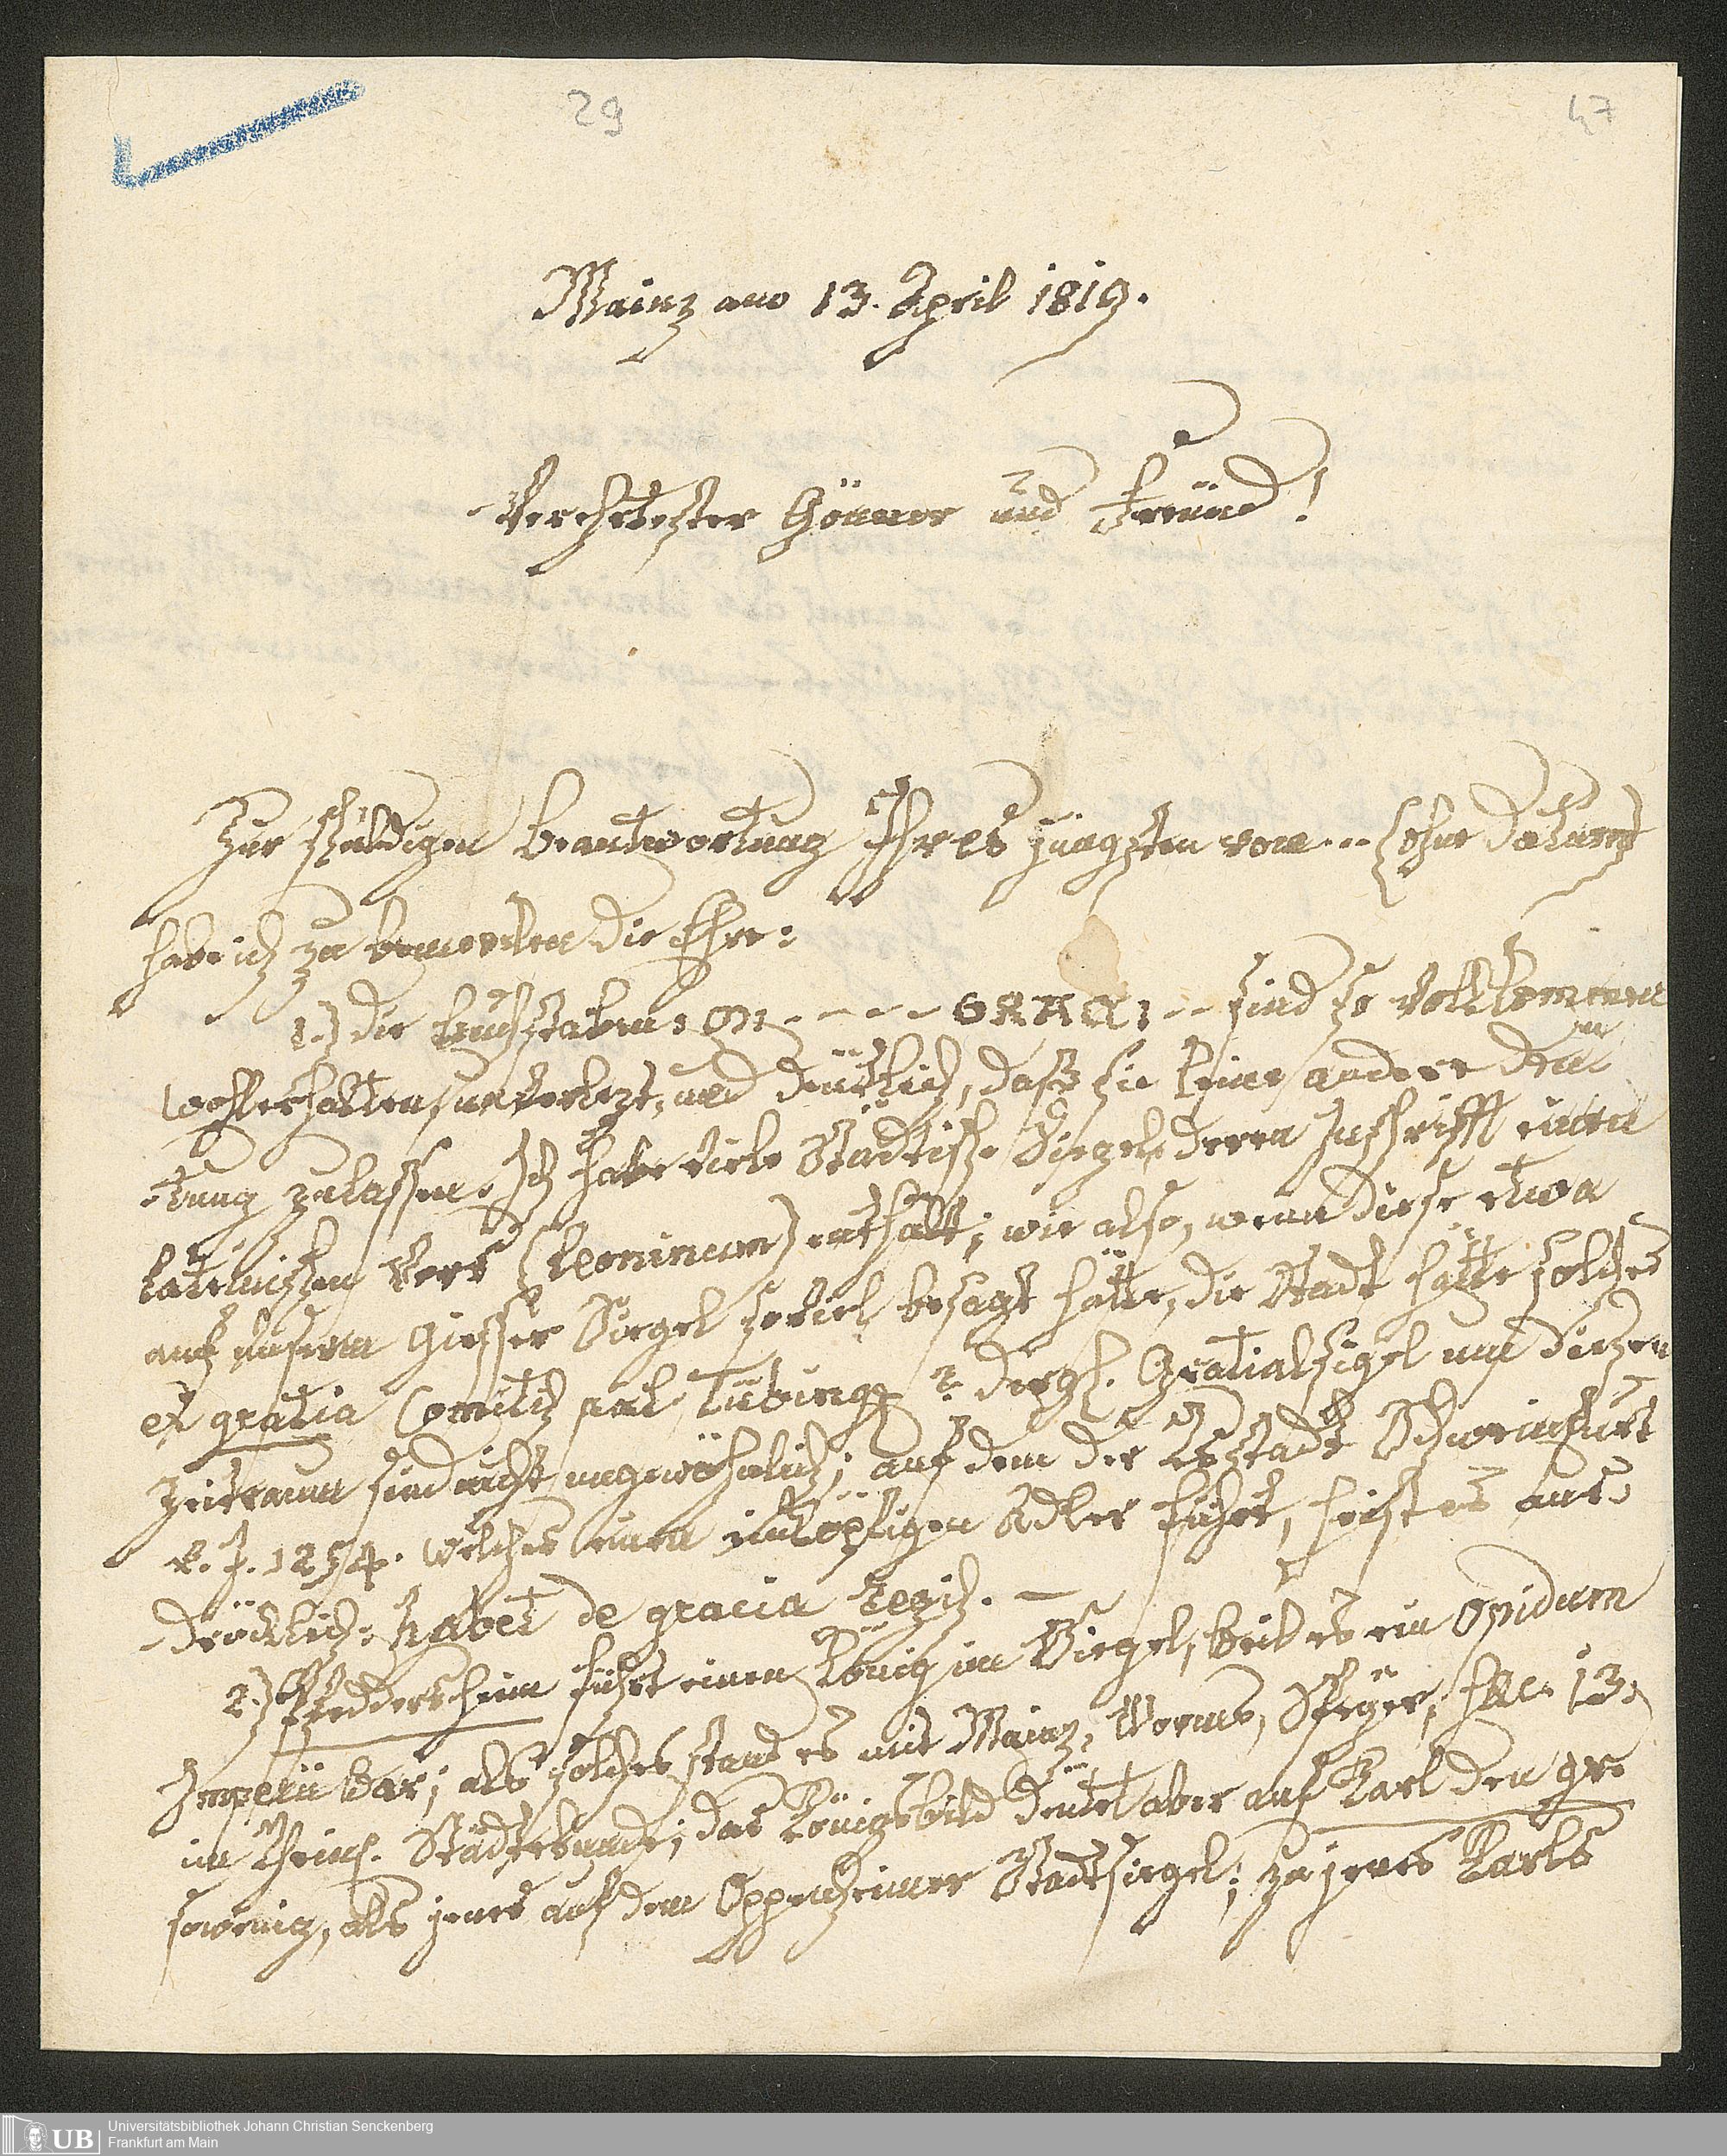 29
47
Mainz am 13. April 1819.
Verehrtester Gönner und Freund!
Zur schuldigen Beantwortung Ihres jüngsten vom ... (ohne Datum)
habe ich zu bemerken die Ehre:
1.) die Buchstaben: - - - - GRACI: - - sind so vollkommen
wohlerhalten, unverlezt, und deutlich, dass sie keine andere Deu
tung zulassen. Ich habe viele Städtische Siegel, deren Inschrifft einen
lateinischen Vers (Leoninum) enthält; wie also, wenn diese etwa
auf unserm Giesser Siegel soviel besagt hätte, die Stadt hätte solches
ex gratia Comitis pal. Tubing? dergl. Gratialsigel um diesen
Zeitraum sind nicht ungewöhnlich; auf dem der Rstadt Schweinfurt
v. J. 1254. welches einen einköpfigen Adler führt, heist es aus-
drücklich: habet de gracia Regis. —
2.) Pfeddersheim führt einen König im Siegel, weil es ein Opidum
Imperii war; als solches stand es mit Mainz, Worms, Speyer, saec. 13.
im Rheinh. Städtebunde; das Königsbild deutet aber auf Karl den gr.
sowenig, als jenes auf dem Oppenheimer Stadtsiegel; zu jenes Karls
UB
Universitätsbibliothek Johann Christian Senckenberg
Frankfurt am Main